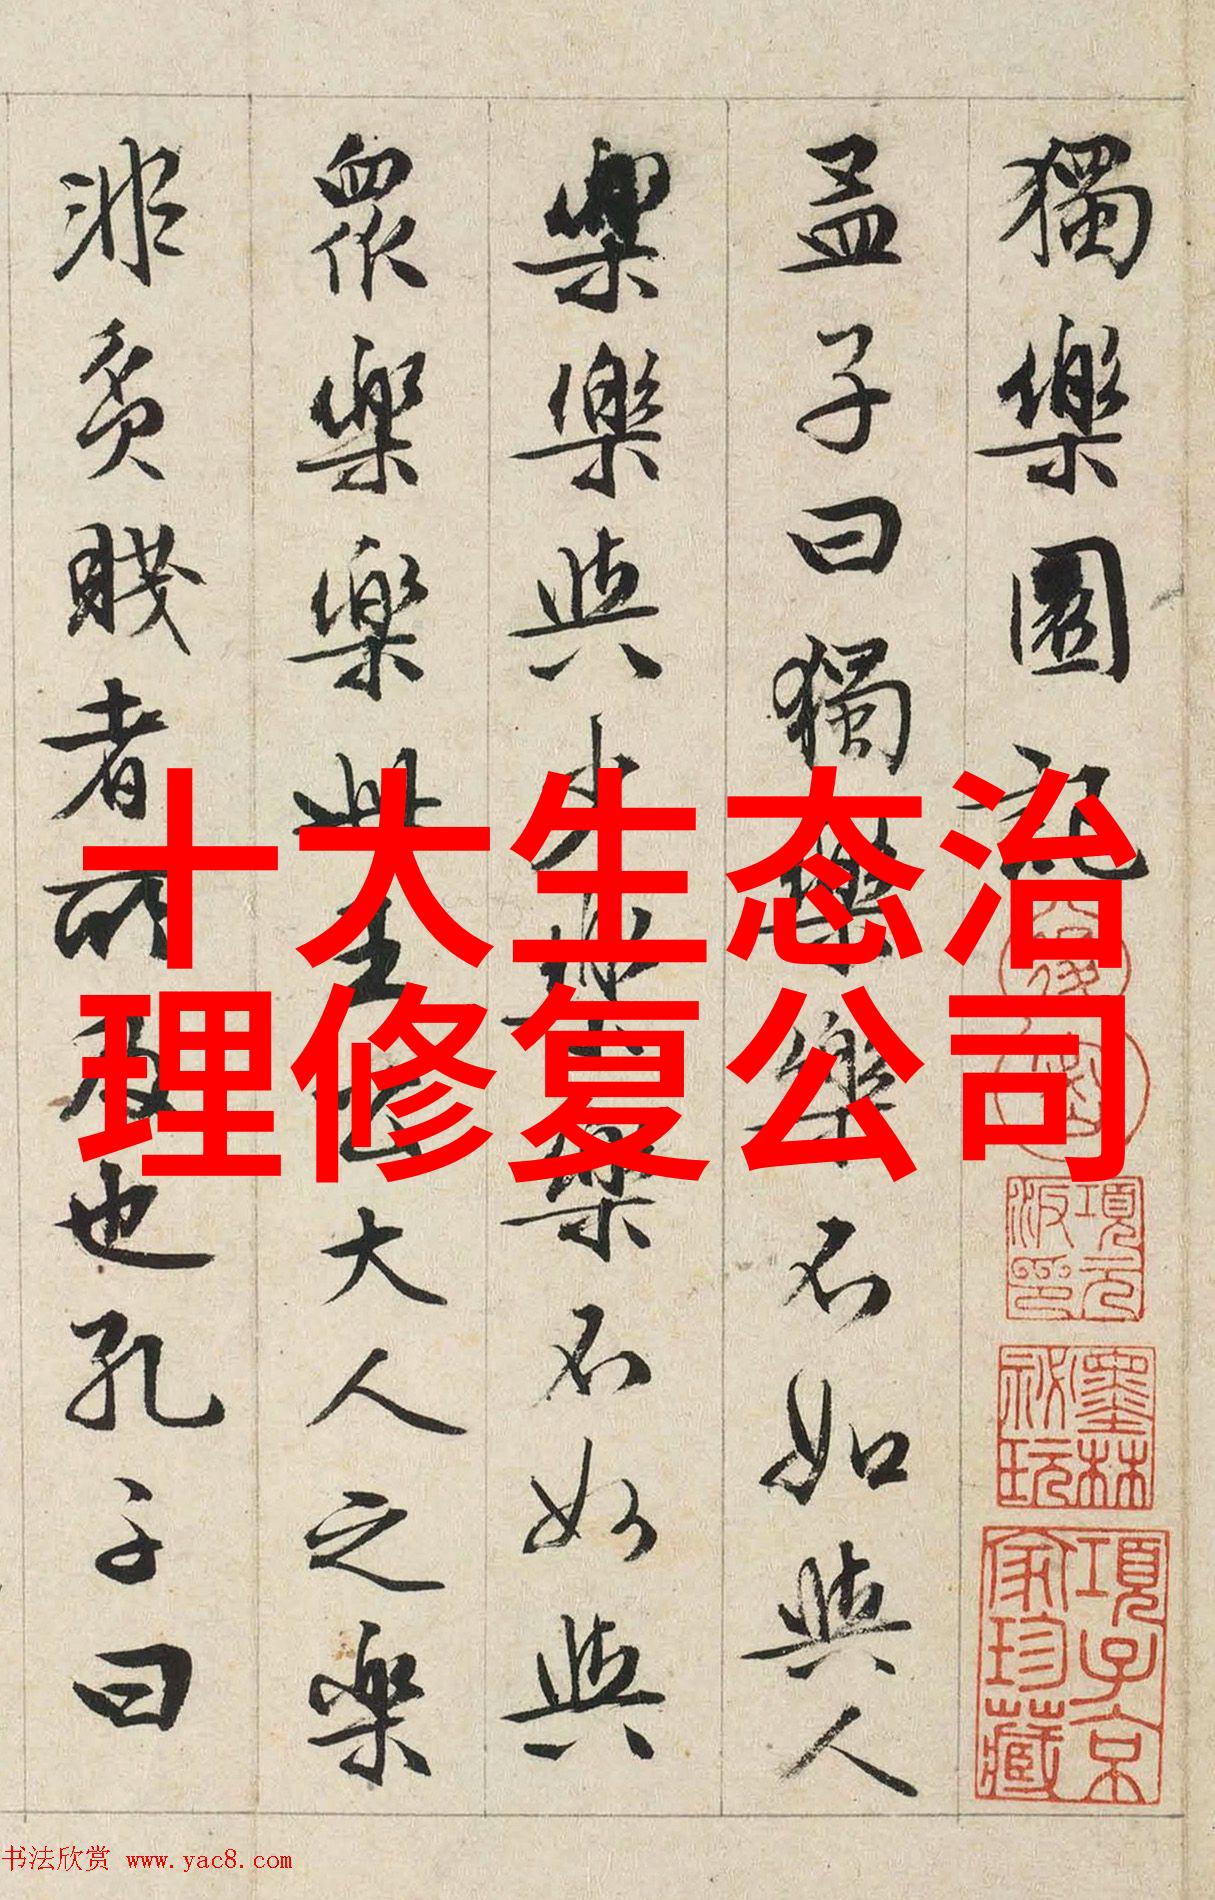 獨樂園記
孟子曰獨樂樂不如與人
樂樂與少樂樂不如與
眾樂樂此王公大人之樂
非貧賤者所及也孔子曰
十大生态治
理修复公司
項元
汴印
墨林
祕玩
項子京
家珍藏
书法欣赏 www.yac8.com